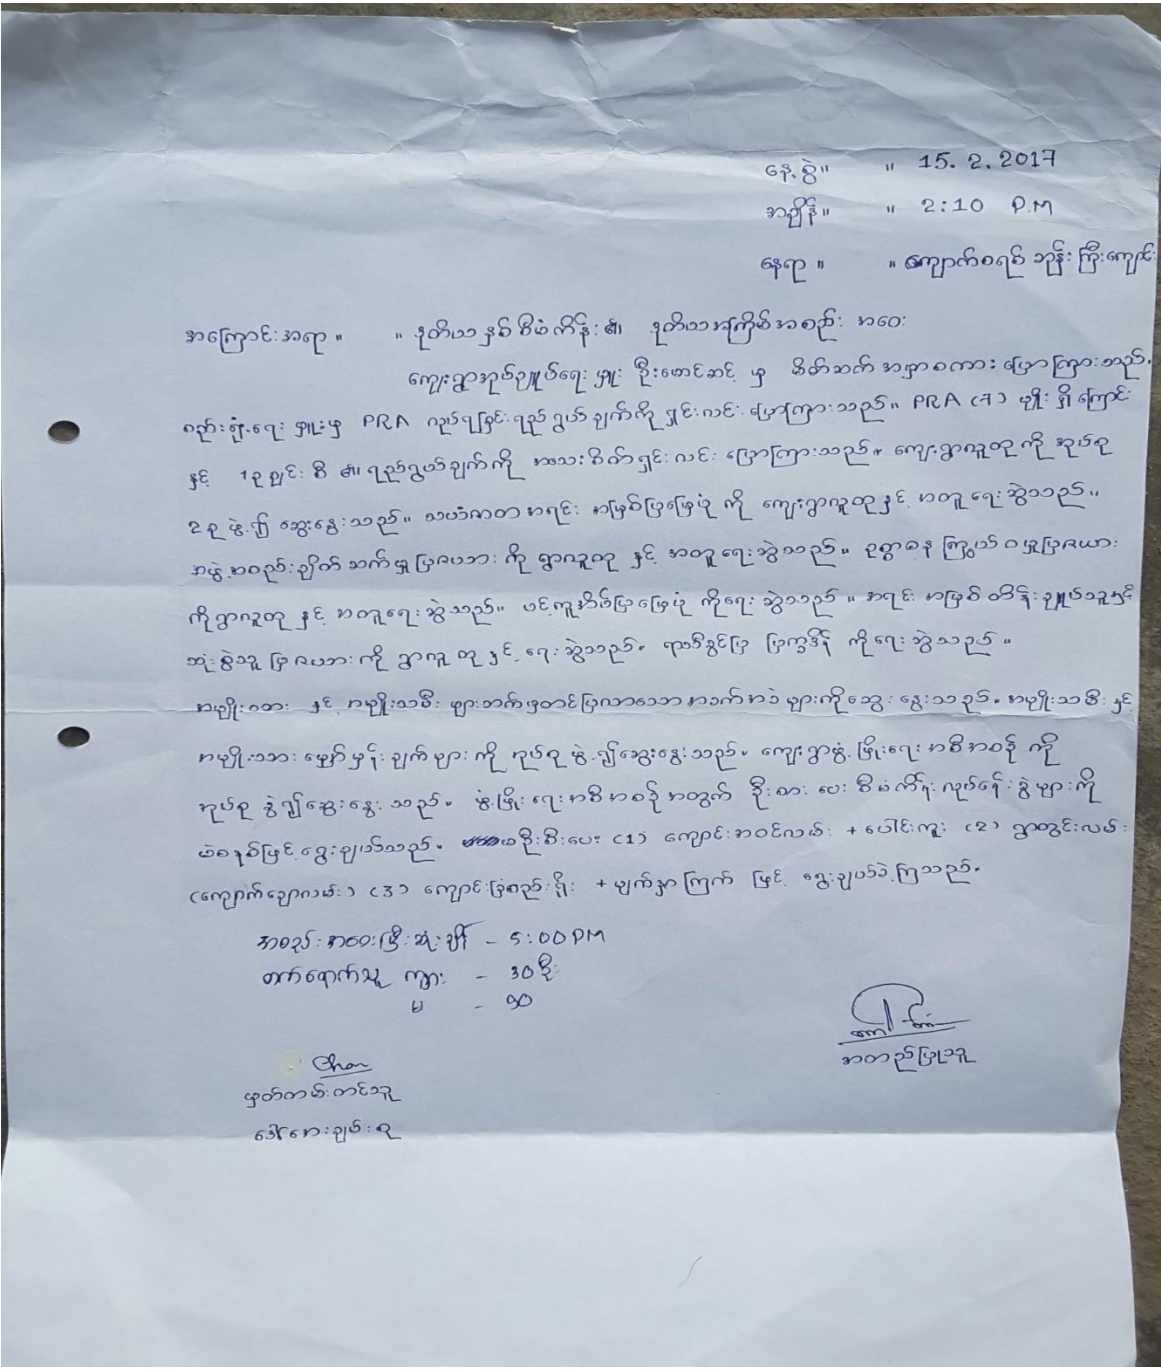 နေ့စွဲ။ ။ 15.2.2017
အချိန်။ ။ 2:10 P.M
နေရာ။ ။ ကျောက်စရစ် ဘုန်းကြီးကျောင်း
အကြောင်းအရာ။ ။ ဒုတိယနှစ်စီမံကိန်း၏ ဒုတိယအကြိမ်အစည်းအဝေး
ကျေးရွာအုပ်ချုပ်ရေးမှူး ဦးမောင်ဆင့် မှ မိတ်ဆက်အမှာစကား ပြောကြားသည်.
စည်းရုံးရေးမှူးမှ PRA လုပ်ရခြင်းရည်ရွယ်ချက်ကို ရှင်းလင်းပြောကြားသည်။ PRA (7) မျိုးရှိကြောင်း
နှင့် 1ခုချင်းစီ၏ ရည်ရွယ်ချက်ကို အသေးစိတ်ရှင်းလင်း ပြောကြားသည်။ ကျေးရွာလူထုကို အုပ်စု
2စုဖွဲ့၍ ဆွေးနွေးသည်။ သယံဇာတအရင်းအမြစ်ပြမြေပုံ ကို ကျေးရွာလူထုနှင့် အတူရေးဆွဲသည်။
အဖွဲ့အစည်းချိတ်ဆက်မှုပြဇယား ကို ရွာလူထု နှင့် အတူရေးဆွဲသည်။ ဥစ္စာဓနကြွယ်ဝမှုပြဇယား
ကိုရွာလူထု နှင့် အတူရေးဆွဲသည်။ ပင့်ကူအိမ်ပြမြေပုံ ကိုရေးဆွဲသည်။ အရင်းအမြစ်ထိန်းချုပ်သူနှင့်
သုံးစွဲသူပြဇယား ကို ရွာလူထု နှင့် ရေးဆွဲသည်. ရာသီခွင်ပြ ပြက္ခဒိန် ကိုရေးဆွဲသည်။
အမျိုးသား နှင့် အမျိုးသမီးများဘက်မှတင်ပြလာသော အခက်အခဲများကိုဆွေးနွေးသည်. အမျိုးသမီးနှင့်
အမျိုးသား မျှော်မှန်းချက်များ ကို အုပ်စုဖွဲ့၍ဆွေးနွေးသည်. ကျေးရွာဖွံ့ဖြိုးရေးအစီအစဉ် ကို
အုပ်စုခွဲ၍ဆွေးနွေးသည်. ဖွံ့ဖြိုးရေးအစီအစဉ်အတွက် ဦးစားပေးစီမံကိန်းလုပ်ငန်းခွဲများကို
မဲစနစ်ဖြင့်ရွေးချယ်သည်. ပဦးစီးပေး (1) ကျောင်းအဝင်လမ်း + ပေါင်းကူး (2) ရွာတွင်းလမ်း
(ကျောက်ချောလမ်း) (3) ကျောင်းခြံစည်းရိုး + မျက်နှာကြက် ဖြင့် ရွေးချယ်ခဲ့ကြသည်.
အစည်းအဝေးပြီးဆုံးချိန် - 5:00 PM
တက်ရောက်သူ ကျား - 30 ဦး
မ - 90
မှတ်တမ်းတင်သူ
အတည်ပြုသူ
ဒေါ်အေးချမ်းစု